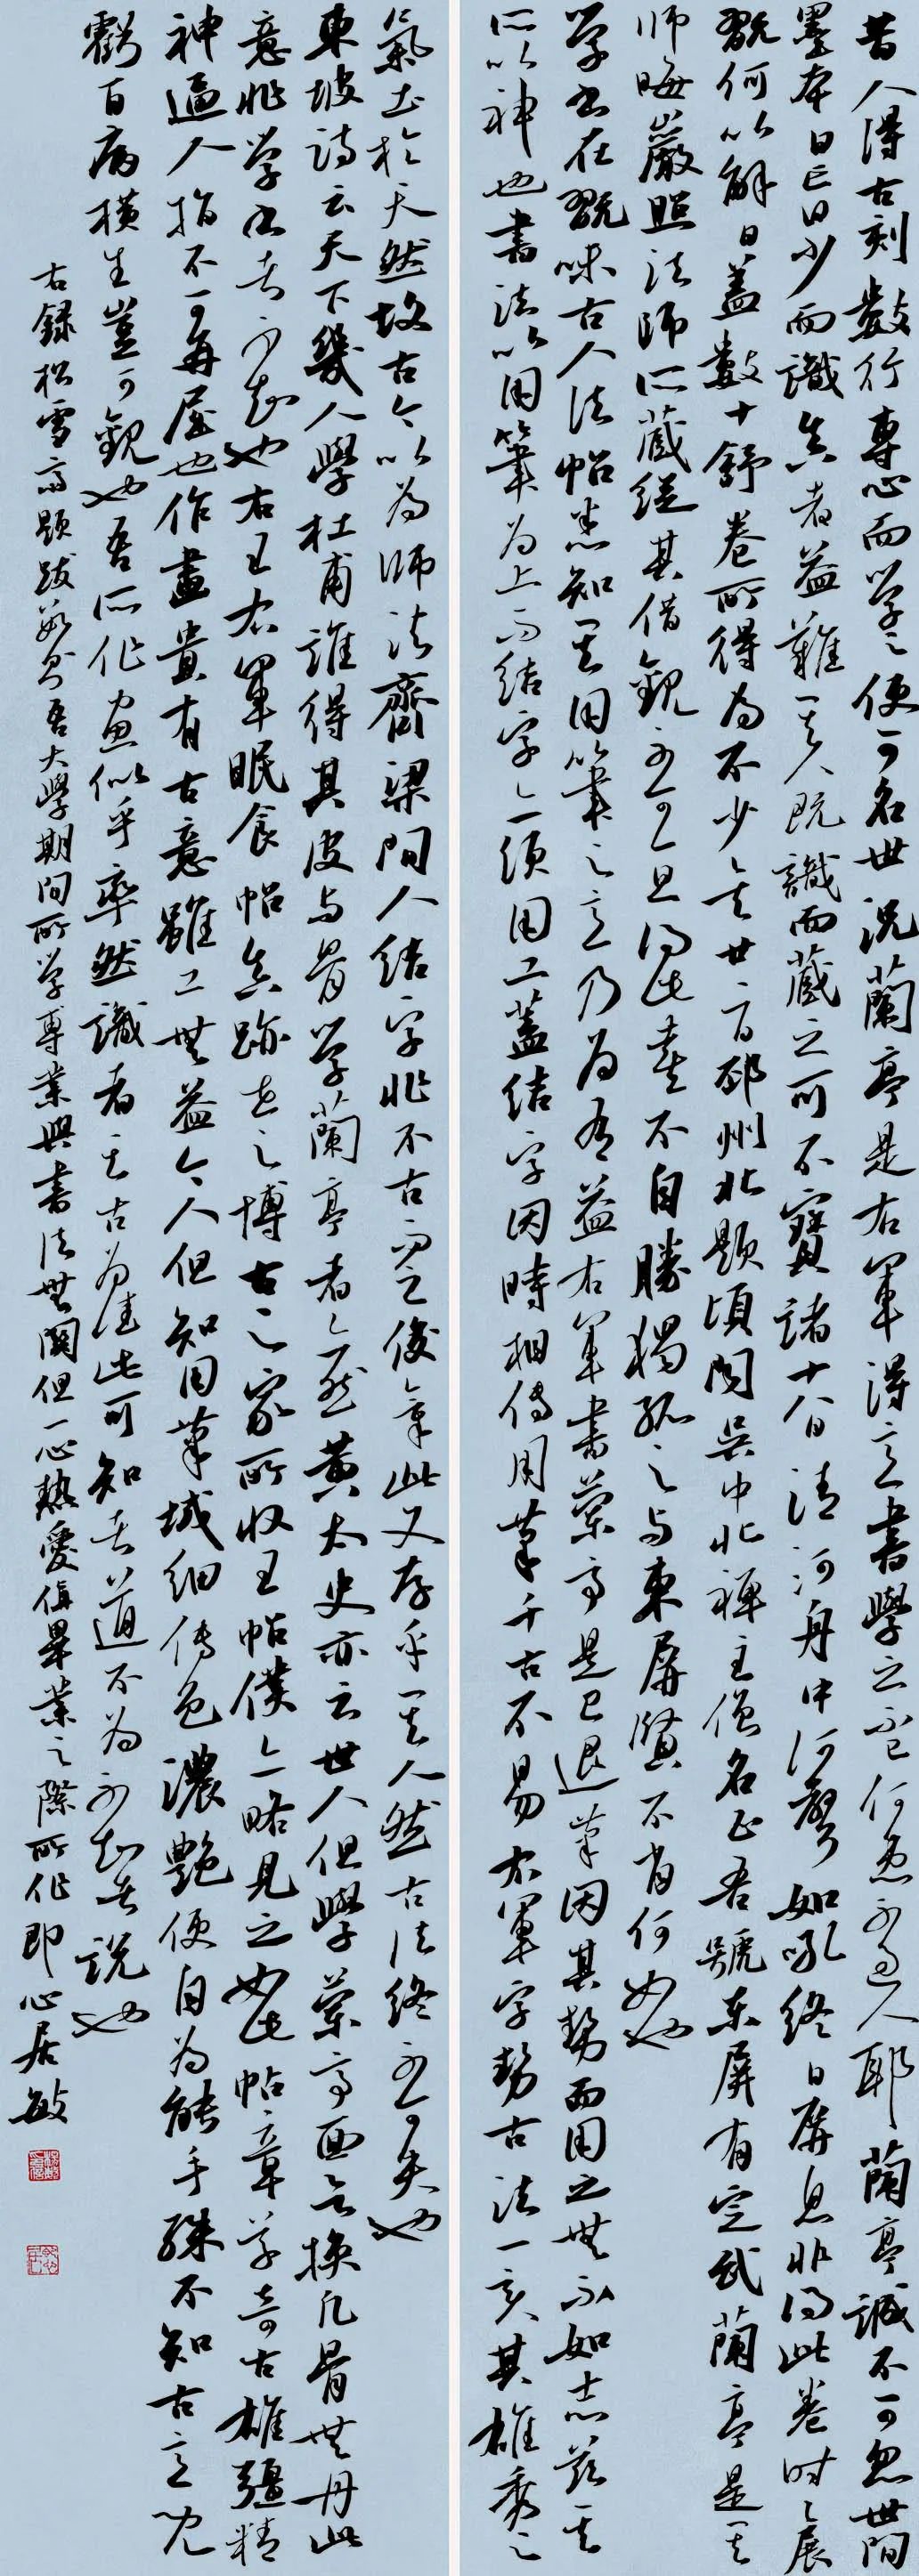 昔人得古刻數行專心而学之便可名世况蘭亭是右軍得意書學之不已何患不過人耶蘭亭誠不可忽世間
墨本日亡日少而識真者益難其人既識而藏之可不寶諸十八日清河舟中河聲如吼終日屏息非得此卷时时展
翫何以解日蓋數十舒卷所得為不少矣廿二日邳州北題頃聞吳中北禪主僧名正吾號东屏有定武蘭亭是其
师晦巖照法师所藏從其借觀不可一旦得此喜不自勝獨孤之与東屏賢不肖何如也
学书在翫味古人法帖悉知其用筆之意乃為有益右軍書蘭亭是已退筆因其勢而用之無不如志茲其
所以神也書法以用筆为上而结字亦須用工蓋结字因時相傳用筆千古不易右軍字勢古法一变其雄秀之
氣出於天然故古今以为师法齊梁間人结字非不古而乏俊氣此又存乎其人然古法终不可失也
東坡诗云天下幾人學杜甫誰得其皮与骨学蘭亭者亦然黄太史亦云世人但學蘭亭面欲换凡骨無丹此
意非学书者不知也右王右軍眠食帖真跡世之博古之家所收王帖僕亦略見之如此帖章草奇古雄疆精
神逼人指不可再屈也作畫貴有古意雖工無益今人但知用筆纖细傅色濃艷便自为能手殊不知古意既
虧百病横生豈可觀也吾所作画似乎率然識者知其古为佳此可知者道不为不知者説也
右録松雪斋題跋数则吾大學期间所学專業與書法無關但一心熱愛值畢業之際所作即心居敏